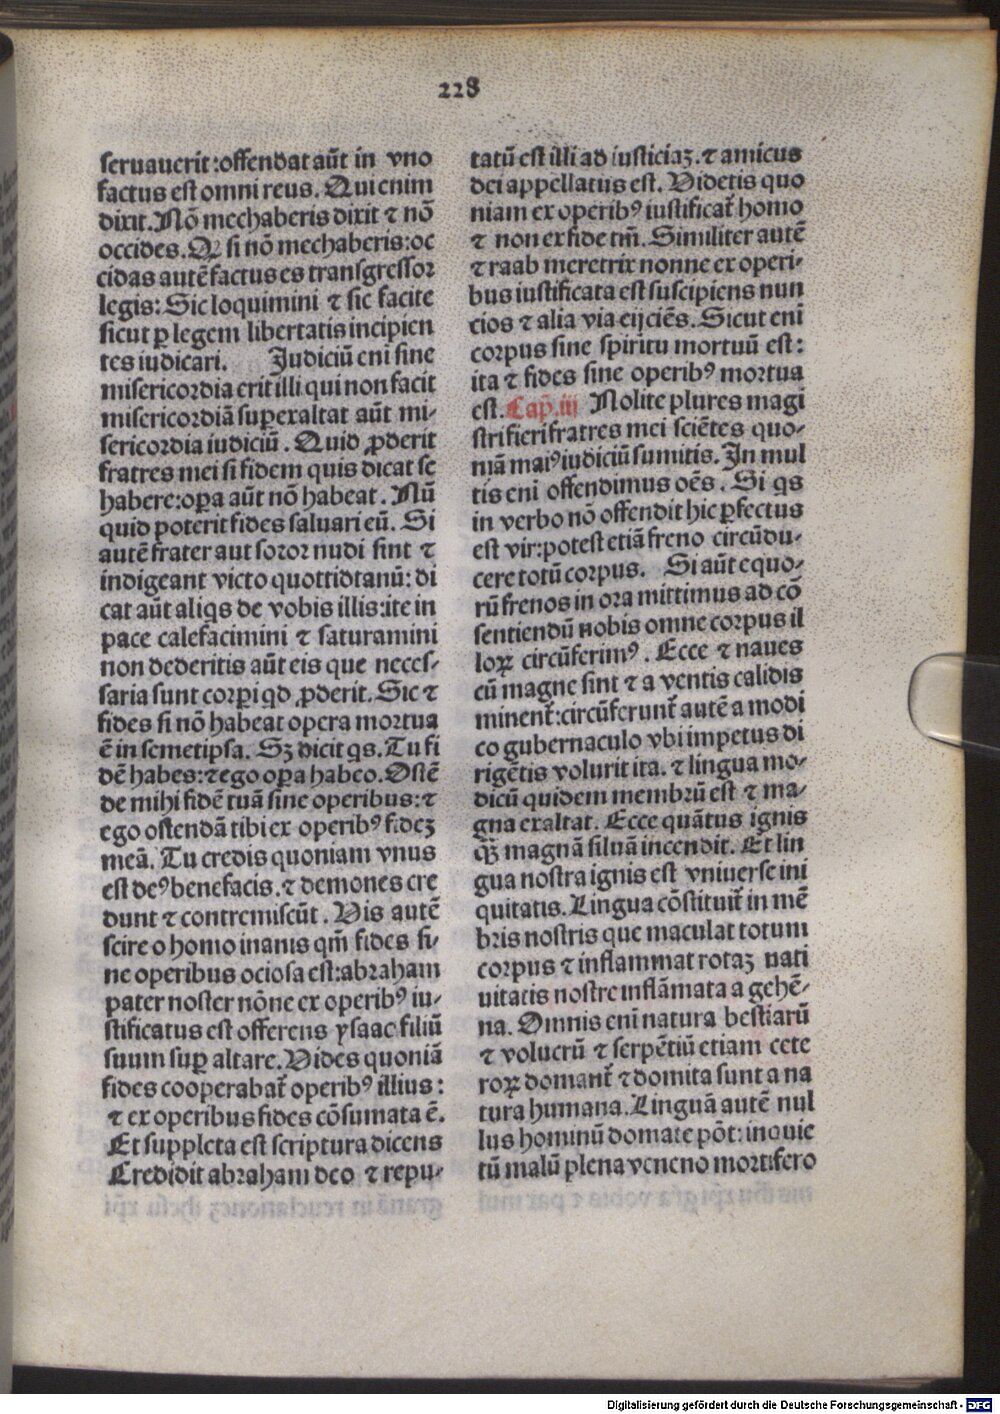 228
seruauerit:offendat aūt in vno
factus est omni reus. Qui enim
dixit. Nō mechaberis dixit ⁊ nō
occides. Qꝛ si nō mechaberis:oc
cidas autē factus es transgressoꝛ
legis: Sic loquimini ⁊ sic facite
sicut ꝑ legem libertatis incipien
tes iudicari. Judiciū eni sine
misericordia erit illi qui non facit
misericordiā suꝑexaltat aūt mi-
sericordia iudiciū. Quid ꝓderit
fratres mei si fidem quis dicat se
habere:oꝑa aūt nō habeat. Nū
quid poterit fides saluari eū. Si
autē frater aut soror nudi sint ⁊
indigeant victo quottidtanū: di
cat aūt aliqs de vobis illis:ite in
pace calefacimini ⁊ saturamini
non dederitis aūt eis que neces-
saria sunt corꝑi qd ꝓderit. Sic ⁊
fides si nō habeat opera mortua
ē in semetipsa. Sꝫ dicit qs. Tu fi
dē habes:⁊ ego oꝑa habeo. Ostē
de mihi fidē tuā sine operibus:⁊
ego ostendā tibi ex operibꝰ fideꝫ
meā. Tu credis quoniam vnus
est deꝰ benefacis. ⁊ demones cre
dunt ⁊ contremiscūt. Vis autē
scire o homo inanis qm̄ fides si-
ne operibus ociosa est:abraham
pater noster nōne ex operibꝰ iu-
stificatus est offerens ysaac filiū
suum suꝑ altare. Vides quoniā
fides cooperabat̄ operibꝰ illius:
⁊ ex operibus fides cōsumata ē.
Et suppleta est scriptura dicens
Credidit abraham deo ⁊ repu-
tatū est illi ad iusticiaꝫ. ⁊ amicus
dei appellatus est. Videtis quo
niam ex operibꝰ iustificat̄ homo
⁊ non ex fide tm̄. Similiter autē
⁊ raab meretrix nonne ex operi-
bus iustificata est suscipiens nun
cios ⁊ alia via eijciēs. Sicut eni
corpus sine spiritu mortuū est:
ita ⁊ fides sine operibꝰ mortua
est. Cap̄.iij Nolite plures magi
stri fieri fratres mei sciētes quo-
niā maiꝰ iudiciū sumitis. In mul
tis eni offendimus oēs. Si qs
in verbo nō offendit hic ꝑfectus
est vir:potest etiā freno circūdu-
cere totū corpus. Si aūt equo-
rū frenos in ora mittimus ad cō
sentiendū nobis omne corpus il
loꝝ circūferimꝰ. Ecce ⁊ naues
cū magne sint ⁊ a ventis calidis
minent̄:circūferunt̄ autē a modi
co gubernaculo vbi impetus di
rigētis volurit ita. ⁊ lingua mo-
dicū quidem membrū est ⁊ ma-
gna exaltat. Ecce quātus ignis
qꝫ̄ magnā siluā incendit. Et lin
gua nostra ignis est vniuerse ini
quitatis. Lingua cōstituit̄ in mē
bris nostris que maculat totum
corpus ⁊ inflammat rotaꝫ nati
uitatis nostre inflāmata a gehē-
na. Omnis eni natura bestiarū
⁊ volucrū ⁊ serpētiū etiam cete
roꝝ domant̄ ⁊ domita sunt a na
tura humana. Linguā autē nul
lus hominū domare pōt: inquie
tū malū plena veneno mortifero
Digitalisierung gefördert durch die Deutsche Forschungsgemeinschaft - DFG